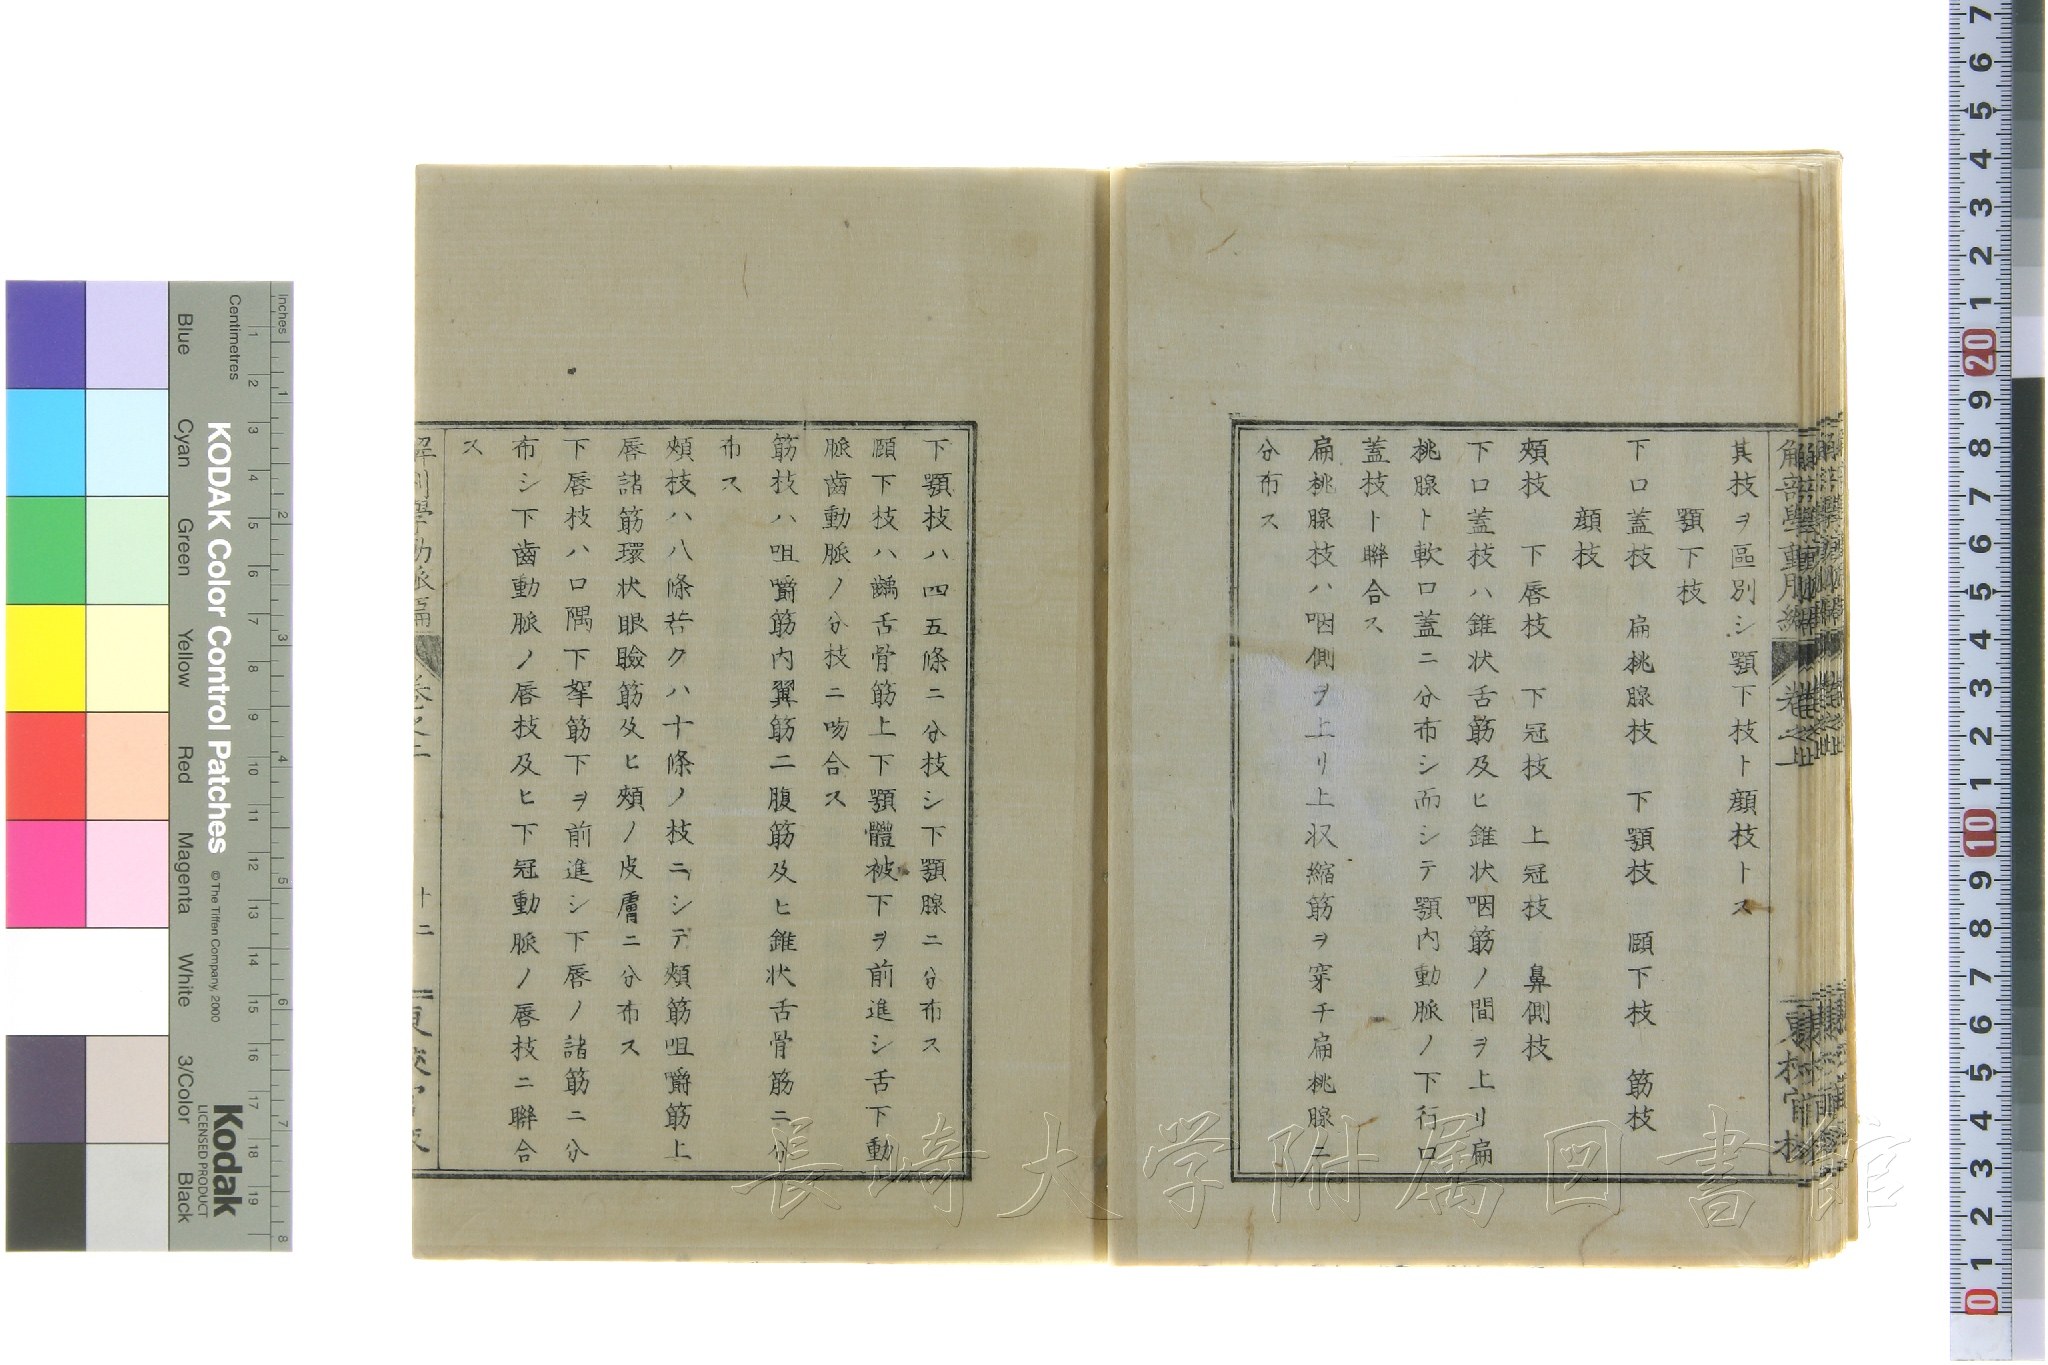 其枝ヲ區別シ顎下枝ト顔枝トス
顎下枝
下口蓋枝 扁桃腺枝 下顎枝 頤下枝 筋枝
顔枝
頰枝 下唇枝 下冠枝 上冠枝 鼻側枝
下口蓋枝ハ錐状舌筋及ヒ錐状咽筋ノ間ヲ上リ扁
桃腺ト軟口蓋ニ分布シ而シテ顎内動脈ノ下行口
蓋枝ト聯合ス
扁桃腺枝ハ咽側ヲ上リ上収縮筋ヲ穿チ扁桃腺ニ
分布ス
下顎枝ハ四五條ニ分枝シ下顎腺ニ分布ス
頤下枝ハ齲舌骨筋上下顎體被下ヲ前進シ舌下動
脈齒動脈ノ分枝ニ吻合ス
筋枝ハ咀嚼筋内翼筋二腹筋及ヒ錐状舌骨筋ニ分
布ス
頰枝ハ八條若クハ十條ノ枝ニシテ頰筋咀嚼筋上
唇諸筋環状眼瞼筋及ヒ頰ノ皮膚ニ分布ス
下唇枝ハ口隅下掣筋下ヲ前進シ下唇ノ諸筋ニ分
布シ下齒動脈ノ唇枝及ヒ下冠動脈ノ唇枝ニ聯合
ス
解剖學動脈編 卷之二 十二
長崎大学附属図書館
KODAK Color Control Patches
© The Tiffen Company, 2000
Kodak
LICENSED PRODUCT
Inches 1 2 3 4 5 6 7 8
Centimetres 1 2 3 4 5 6 7 8 9 10 11 12 13 14 15 16 17 18 19
Blue Cyan Green Yellow Red Magenta White 3/Color Black
7 6 5 4 3 2 1 20 9 8 7 6 5 4 3 2 1 10 9 8 7 6 5 4 3 2 1 0